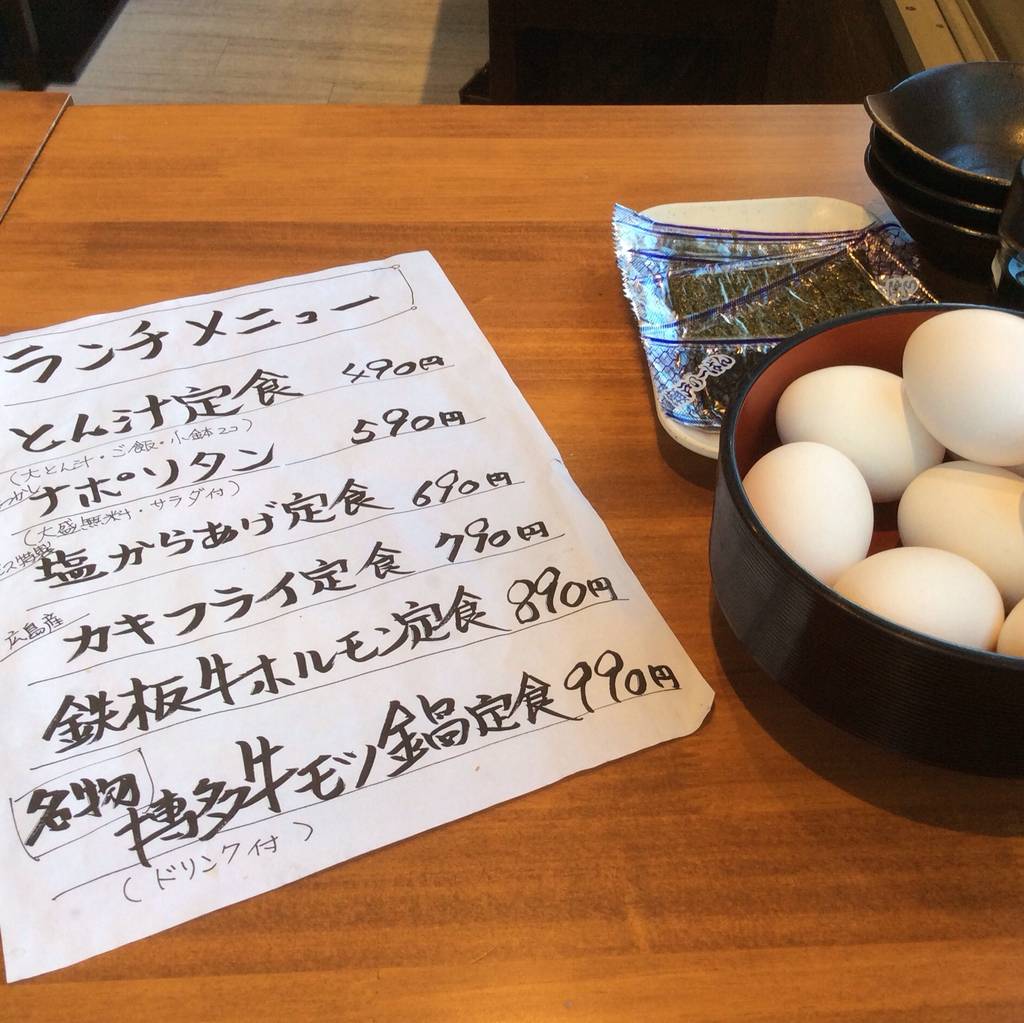 ランチメニュー
とん汁定食 490円
(大とん汁・ご飯・小鉢2コ)
ナポリタン 590円
(大盛無料・サラダ付)
特製 塩からあげ定食 690円
広島産 カキフライ定食 790円
鉄板牛ホルモン定食 890円
名物 博多牛モツ鍋定食 990円
(ドリンク付)